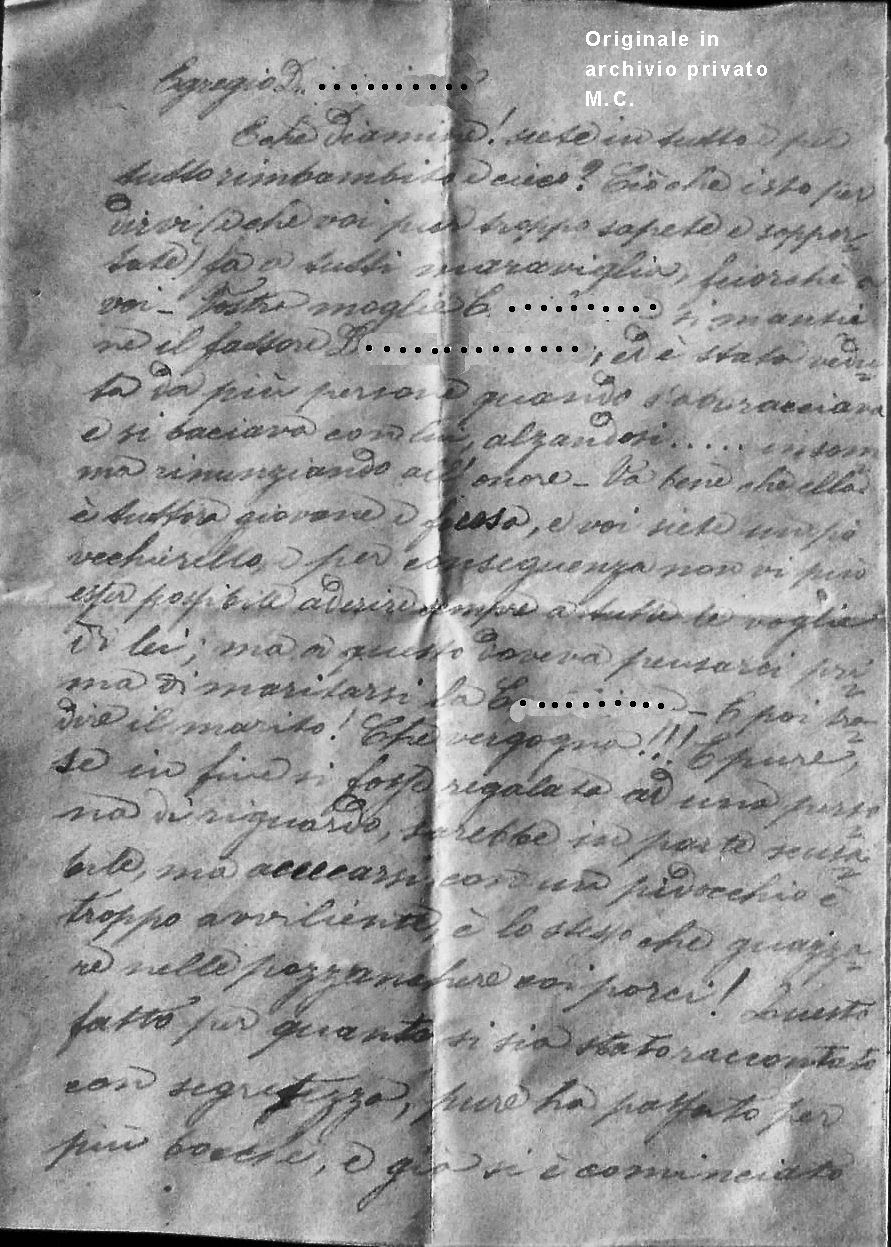 Originale in
archivio privato
M.C.
Egregio D. ..........
E che diamine! siete in tutto e per
tutto rimbambito e cieco? Ciò che isto per
dirvi (e che voi pur troppo sapete e soppor-
tate) fa a tutti maraviglia, fuorché a
voi - Vostra moglie C. .......... si mantie
ne il fattore D..............., ed è stata vedu-
ta da più persone quando s'abbracciava
e si baciava con lui, alzandosi..... insom
ma rinunziando all'onore - Va bene che ella
è tuttora giovane e focosa, e voi siete un pò
vecchierello, e per conseguenza non vi può
esser possibile aderire sempre a tutte le voglie
di lei; ma a questo doveva pensarci pri-
ma di maritarsi la C.......... - E poi tra-
dire il marito! Che vergogna!!! E pure,
se in fine si fosse regalata ad una perso
na di riguardo, sarebbe in parte scusa-
bile, ma accecarsi con un pidocchio è
troppo avviliente, è lo stesso che guazza-
re nelle pozzanchere coi porci! Questo
fatto per quanto si sia stato raccontato
con segretezza, pure ha passato per
più bocche, e già si è cominciato